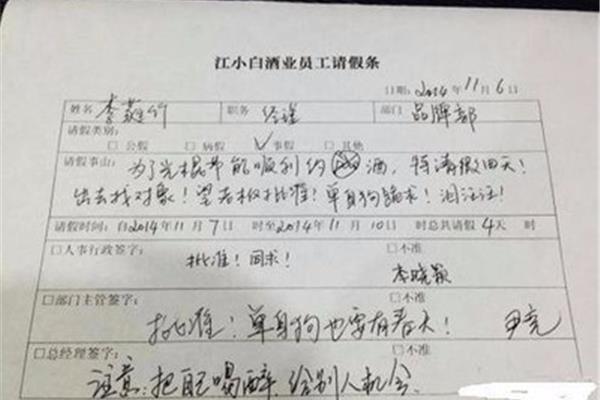 江小白酒业员工请假条
日期: 2014年11月6日
姓名 李 竹 职务 经理 部门 品牌部
请假类别:
□ 公假 □ 病假 √ 事假 □ 其他
请假事由: 为了光棍节能顺利约 酒, 特请假四天!
出去找对象! 望老板批准! 单身狗请求! 泪汪汪!
请假时间: 自2014年11月7日 时至2014年11月10日 时总共请假4天 时
□人事行政签字: □不准
批准! 同求!
李晓颖
□部门主管签字: □不准
批准! 单身狗也要有春天! 尹亮
□总经理签字: □不准
注意: 把自己喝醉 给别人机会